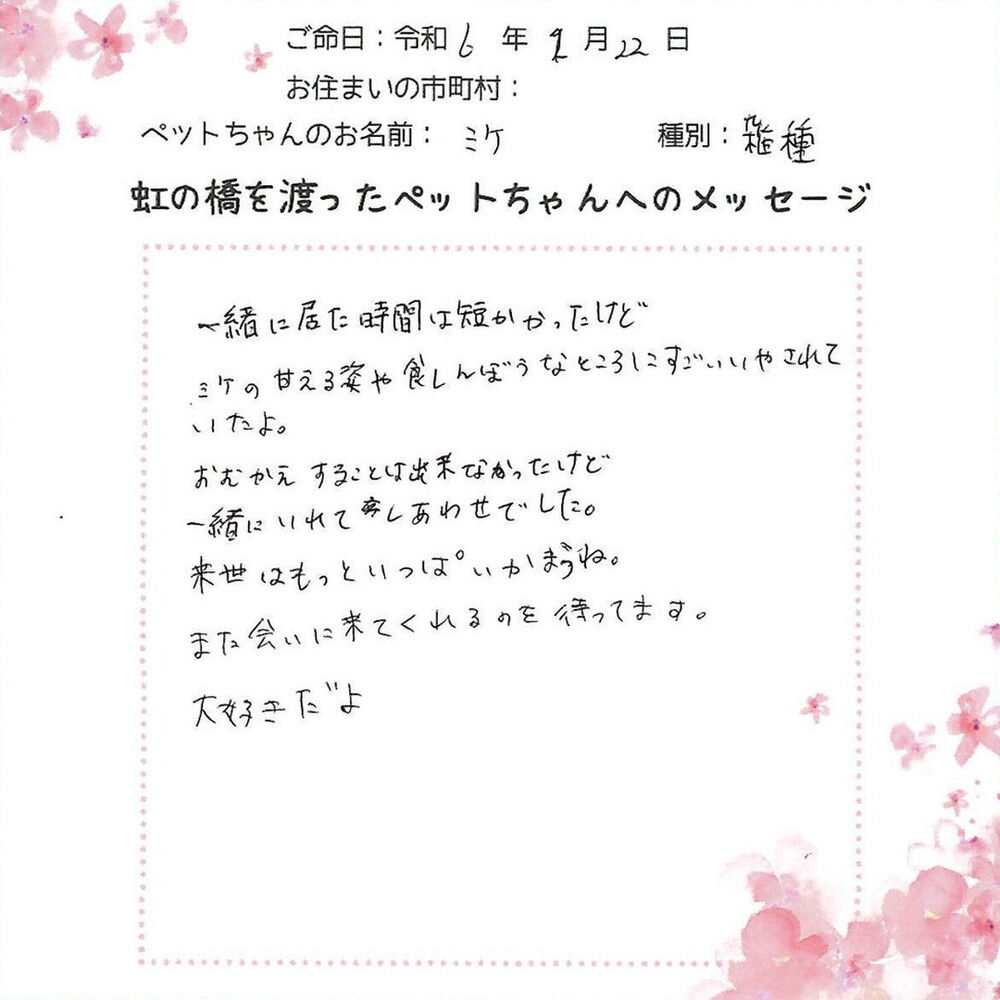 ご命日：令和6年9月22日
お住まいの市町村：
ペットちゃんのお名前：ミケ 種別：雑種
虹の橋を渡ったペットちゃんへのメッセージ
一緒に居た時間は短かかったけど
ミケの甘える姿や食しんぼうなところにすごいいやされて
いたよ。
おむかえすることは出来なかったけど
一緒にいれてしあわせでした。
来世はもっといっぱいかまうね。
また会いに来てくれるのを待ってます。
大好きだよ